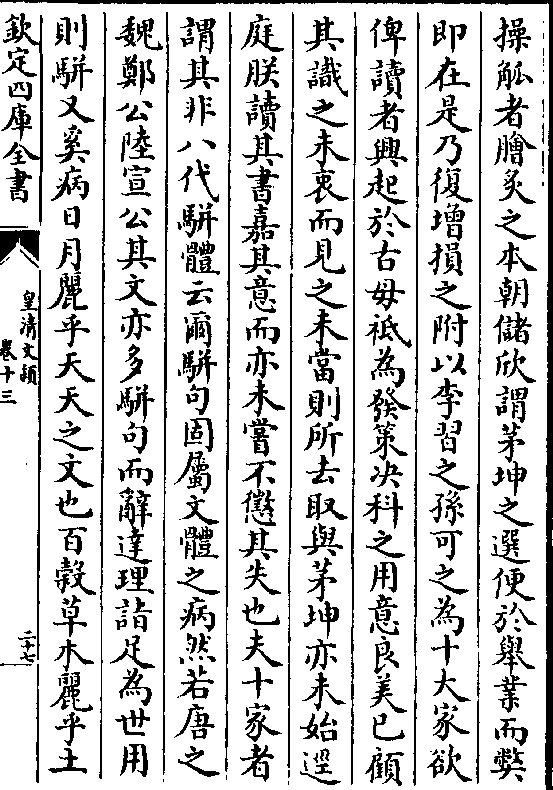 操觚者膾炙之本朝儲欣謂茅坤之選便於舉業而弊
即在是乃復增損之附以李習之孫可之為十大家欲
俾讀者興起於古毋祗為發策决科之用意良美已顧
其識之未衷而見之未當則所去取與茅坤亦未始逕
庭朕讀其書嘉其意而亦未嘗不懲其失也夫十家者
謂其非八代駢體云爾駢句固屬文體之病然若唐之
魏鄭公陸宣公其文亦多駢句而辭達理詣足為世用
則駢又奚病日月麗乎天天之文也百榖草木麗乎土
欽定四庫全書
皇清文穎
卷十三
二十七